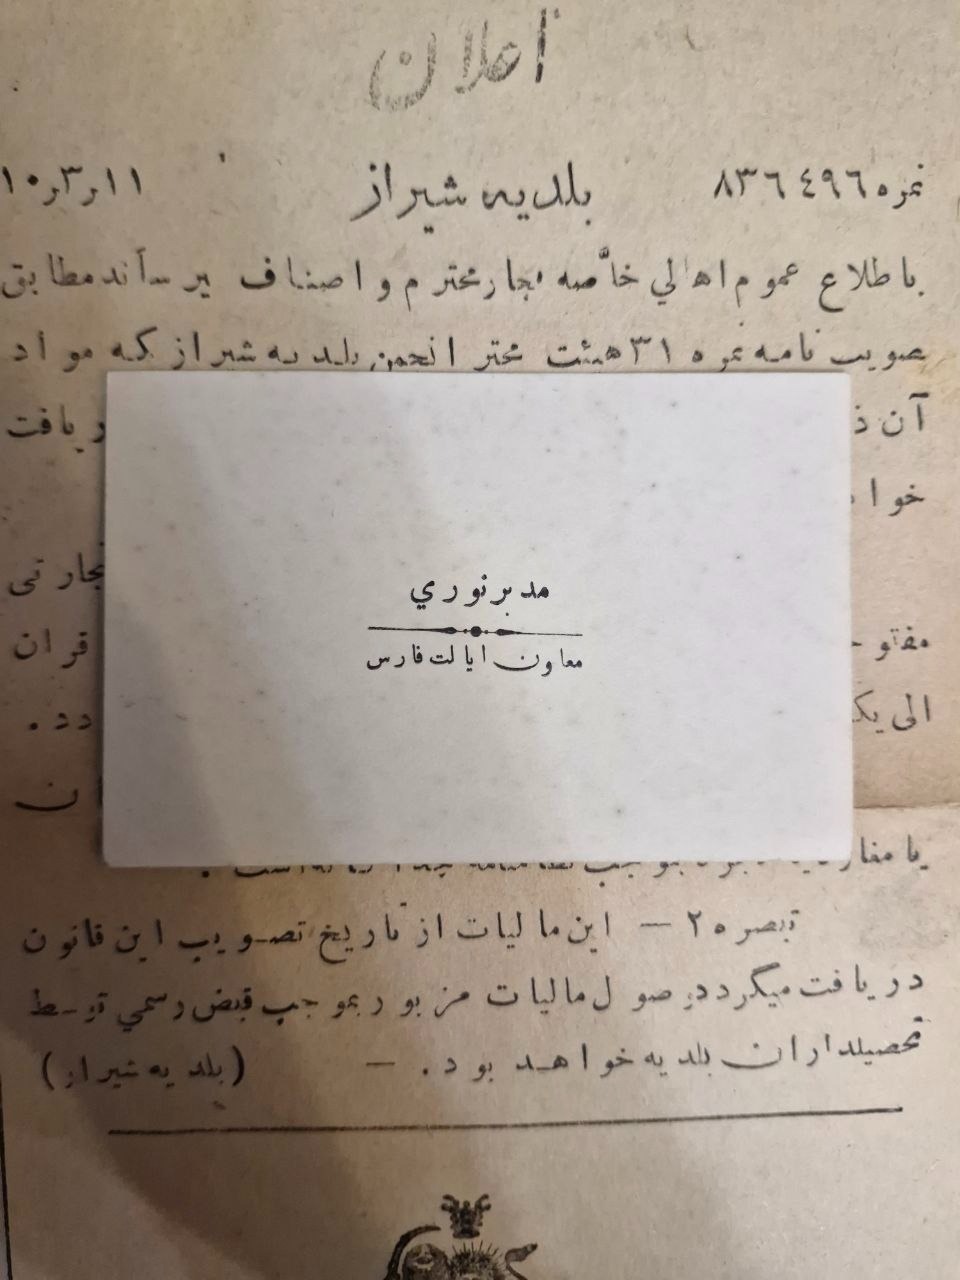 اعلان
نمره ۸۳٦٤٩٦ بلدیه شیراز ۱۱ر۳ر۱۰
باطلاع عموم اهالي خاصّه تجار محترم و اصناف میرساند مطابق
تصویب نامه نمره ۳۱ هیئت محتر انجمن بلدیه شیراز که مواد
آن ذ ریافت
خوا
تجارتی
مفتو قران
الی یک دد .
ان
یا مغاز
تبصره ۲ — این مالیات از تاریخ تصویب این قانون
دریافت میگردد و صول مالیات مزبور بموجب قبض رسمي توسط
تحصیلداران بلدیه خواهد بود . — (بلدیه شیراز)
مدبر نوري
معاون ایالت فارس